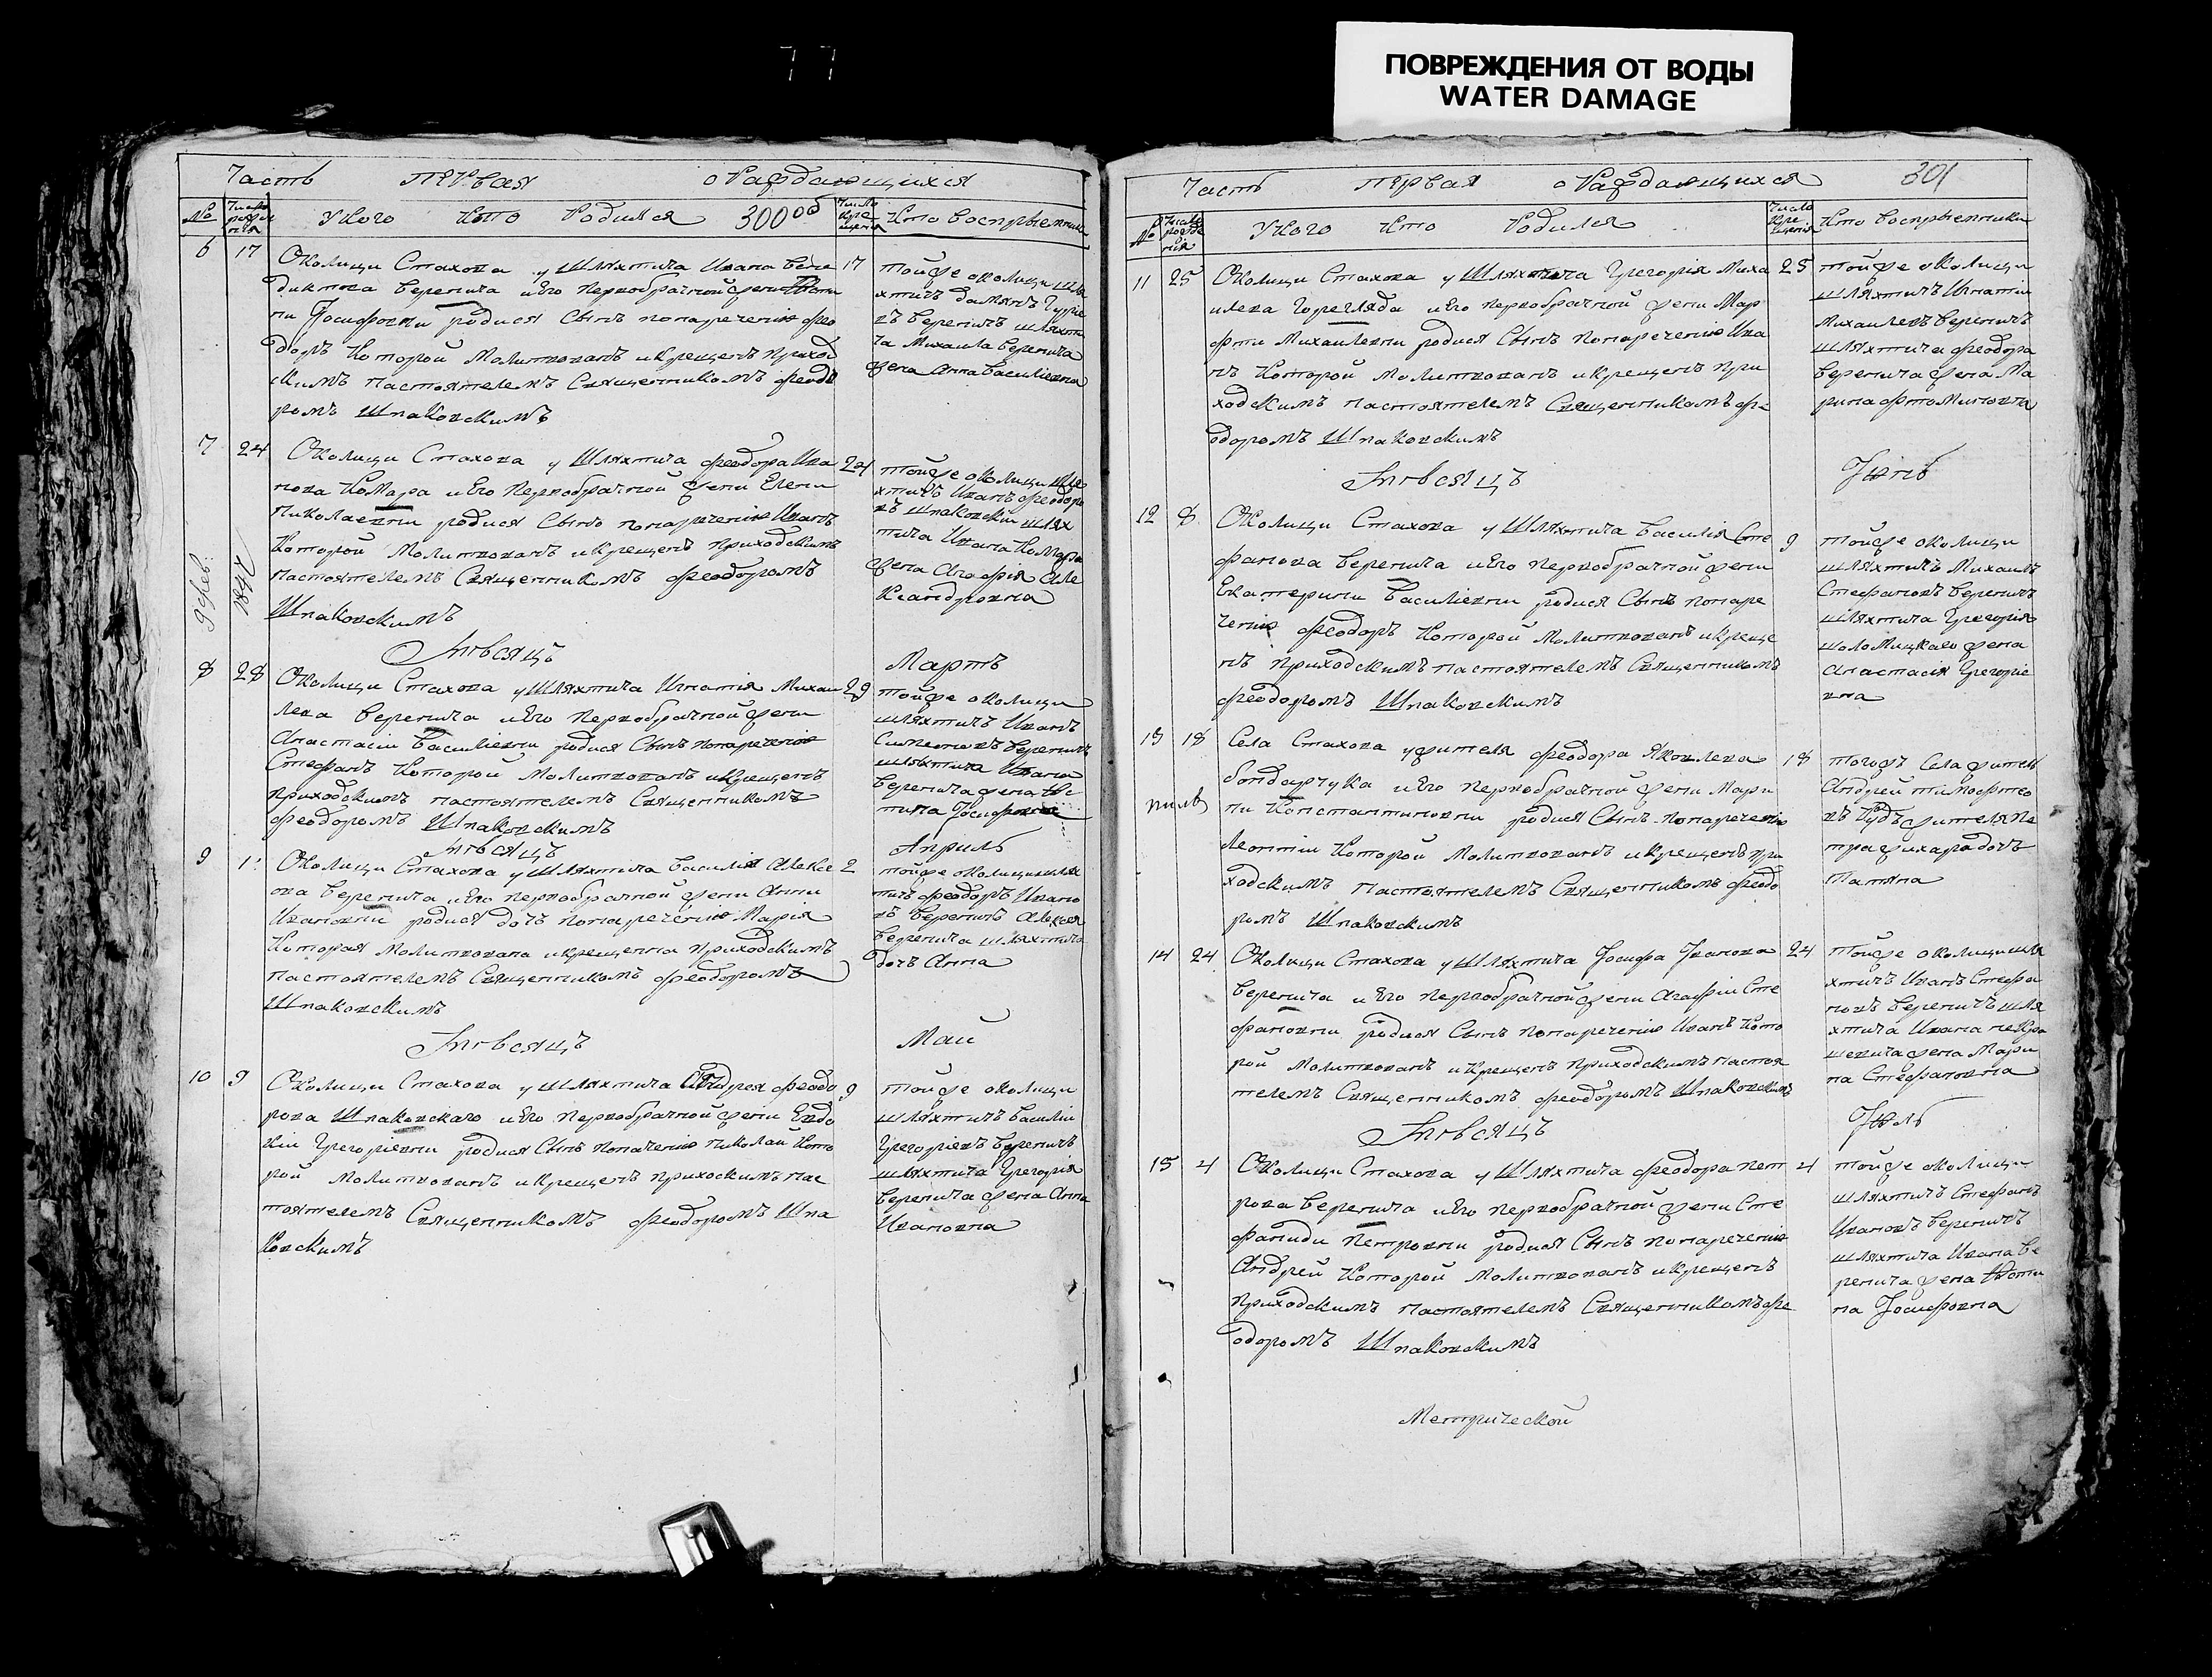 77
ПОВРЕЖДЕНИЯ ОТ ВОДЫ
WATER DAMAGE
Часть первая о Раждающихся
№ Число рожде нія У Кого Кто Родился 300 об Число кре щенія Кто восприемники
6 17 Околицы Стахова у Шляхтича Ивана Бене 17
диктова Веренича и Его Первобрачной жены
ны Іосифовны родился Сынъ понареченію Фео
доръ Которой Молитвованъ и Крещенъ Приход
скимъ настоятелемъ Священникомъ Феодо
ромъ Шпаковскимъ
тойже околицы шля
хтичъ Дамянъ Гурie
въ Вереничъ шляхти
ча Михаила Веренича
жена Анна Василіевна
7 24 Околицы Стахова у Шляхтича Феодора Ива 24
нова Комара и Его Первобрачной жены Елены
Николаевны родился Сынъ понареченію Иванъ
Которой Молитвованъ и Крещенъ Приходскимъ
настоятелемъ Священникомъ Феодоромъ
Шпаковскимъ
тойже околицы шля
хтичъ Иванъ Феодоро
въ Шпаковскій шлях
тича Ивана Комара
жена Агафія Але
ксандровна
9 фев: 1842
Мѣсяцъ Мартъ
8 28 Околицы Стахова у Шляхтича Игнатія Михаи 29
лева Веренича и Его Первобрачной жены
Анастасіи Василіевны родился Сынъ понареченію
Стефанъ Которой Молитвованъ и Крещенъ
Приходскимъ настоятелемъ Священникомъ
Феодоромъ Шпаковскимъ
тойже околицы
шляхтичъ Иванъ
Симеоновъ Вереничъ
шляхтича Ивана
Веренича жена
Іосифовна
Мѣсяцъ Апрѣль
9 1 Околицы Стахова у Шляхтича Василія Алексе 2
ова Веренича и Его Первобрачной жены Анны
Ивановны родися дочъ понареченію Марія
Которая Молитвована и крещенна Приходскимъ
настоятелемъ Священникомъ Феодоромъ
Шпаковскимъ
тойже околицы шлях
тичъ Феодоръ Ивано
въ Вереничъ Алексея
Веренича шляхтича
дочъ Анна
Мѣсяцъ Май
10 9 Околицы Стахова у Шляхтича Андрея Феодо 9
рова Шпаковскаго и Его Первобрачной жены Евдо
кіи Григоріевны родился Сынъ поначенію Николай Кото
рой Молитвованъ и Крещенъ Прихоскимъ нас
тоятелемъ Священникомъ Феодоромъ Шпа
ковскимъ
тойже околицы
шляхтичъ Василій
Григоріевъ Вереничъ
шляхтича Григорія
Веренича жена Анна
Ивановна
Часть первая о Раждающихся 301
№ Число рожде нія У Кого Кто Родился Число Кре щенія Кто восприемники
11 25 Околицы Стахова у Шляхтича Григорія Миха 25
илева Горегляда и Его Первобрачной жены Мар
фы Михаилевны родился Сынъ понареченію Ива
нъ Которой Молитвованъ и Крещенъ При
ходскимъ настоятелемъ Священникомъ Фе
одоромъ Шпаковскимъ
тойже околицы
шляхтичъ Игнатій
Михаилевъ Вереничъ
шляхтича Феодора
Веренича жена Ма
рина Фтоминовна
Мѣсяцъ Іюнь
12 8 Околицы Стахова у Шляхтича Василія Сте 9
фанова Веренича и Его Первобрачной жены
Екатерины Василіевны родился Сынъ понаре
ченію Феодоръ Которой Молитвованъ и креще
нъ Приходскимъ настоятелемъ Священникомъ
Феодоромъ Шпаковскимъ
тойже околицы
шляхтичъ Михаилъ
Стефановъ Вереничъ
шляхтича Григорія
Шоломицкаго жена
Анастасія Григоріе
вна
13 18 Села Стахова у жителя Феодора Яковлева 18
Бондарчука и Его Первобрачной жены Мари
ны Константиновны родился Сынъ понареченію
Леонтій Которой Молитвованъ и Крещенъ При
ходскимъ Настоятелемъ Священникомъ Феодо
ромъ Шпаковскимъ
тогожъ Села житель
Андрей Тимофтео
въ жителя Пе
тра
Татяна
14 24 Околицы Стахова у Шляхтича Іосифа Іванова 24
Веренича и Его Первобрачной жены Агафіи Сте
фановны родился Сынъ понареченію Иванъ Кото
рой Молитвованъ и Крещенъ Приходскимъ Настоя
телемъ Священникомъ Феодоромъ Шпаковскимъ
тойже околицы шля
хтичъ Иванъ Стефа
новъ Вереничъ шля
хтича Ивана Некра
шевича жена Мари
на Стефановна
Мѣсяцъ Іюль
15 4 Околицы Стахова у Шляхтича Феодора Пет 4
рова Веренича и Его первобрачной жены Сте
фаниды Петровны родился Сынъ понареченію
Андрей Которой Молитвованъ и Крещенъ
Приходскимъ настоятелемъ Священникомъ Фе
одоромъ Шпаковскимъ
тойже околицы
шляхтичъ Стефанъ
Ивановъ Вереничъ
шляхтича Ивана Ве
ренича жена
на Іосифовна
Метрической